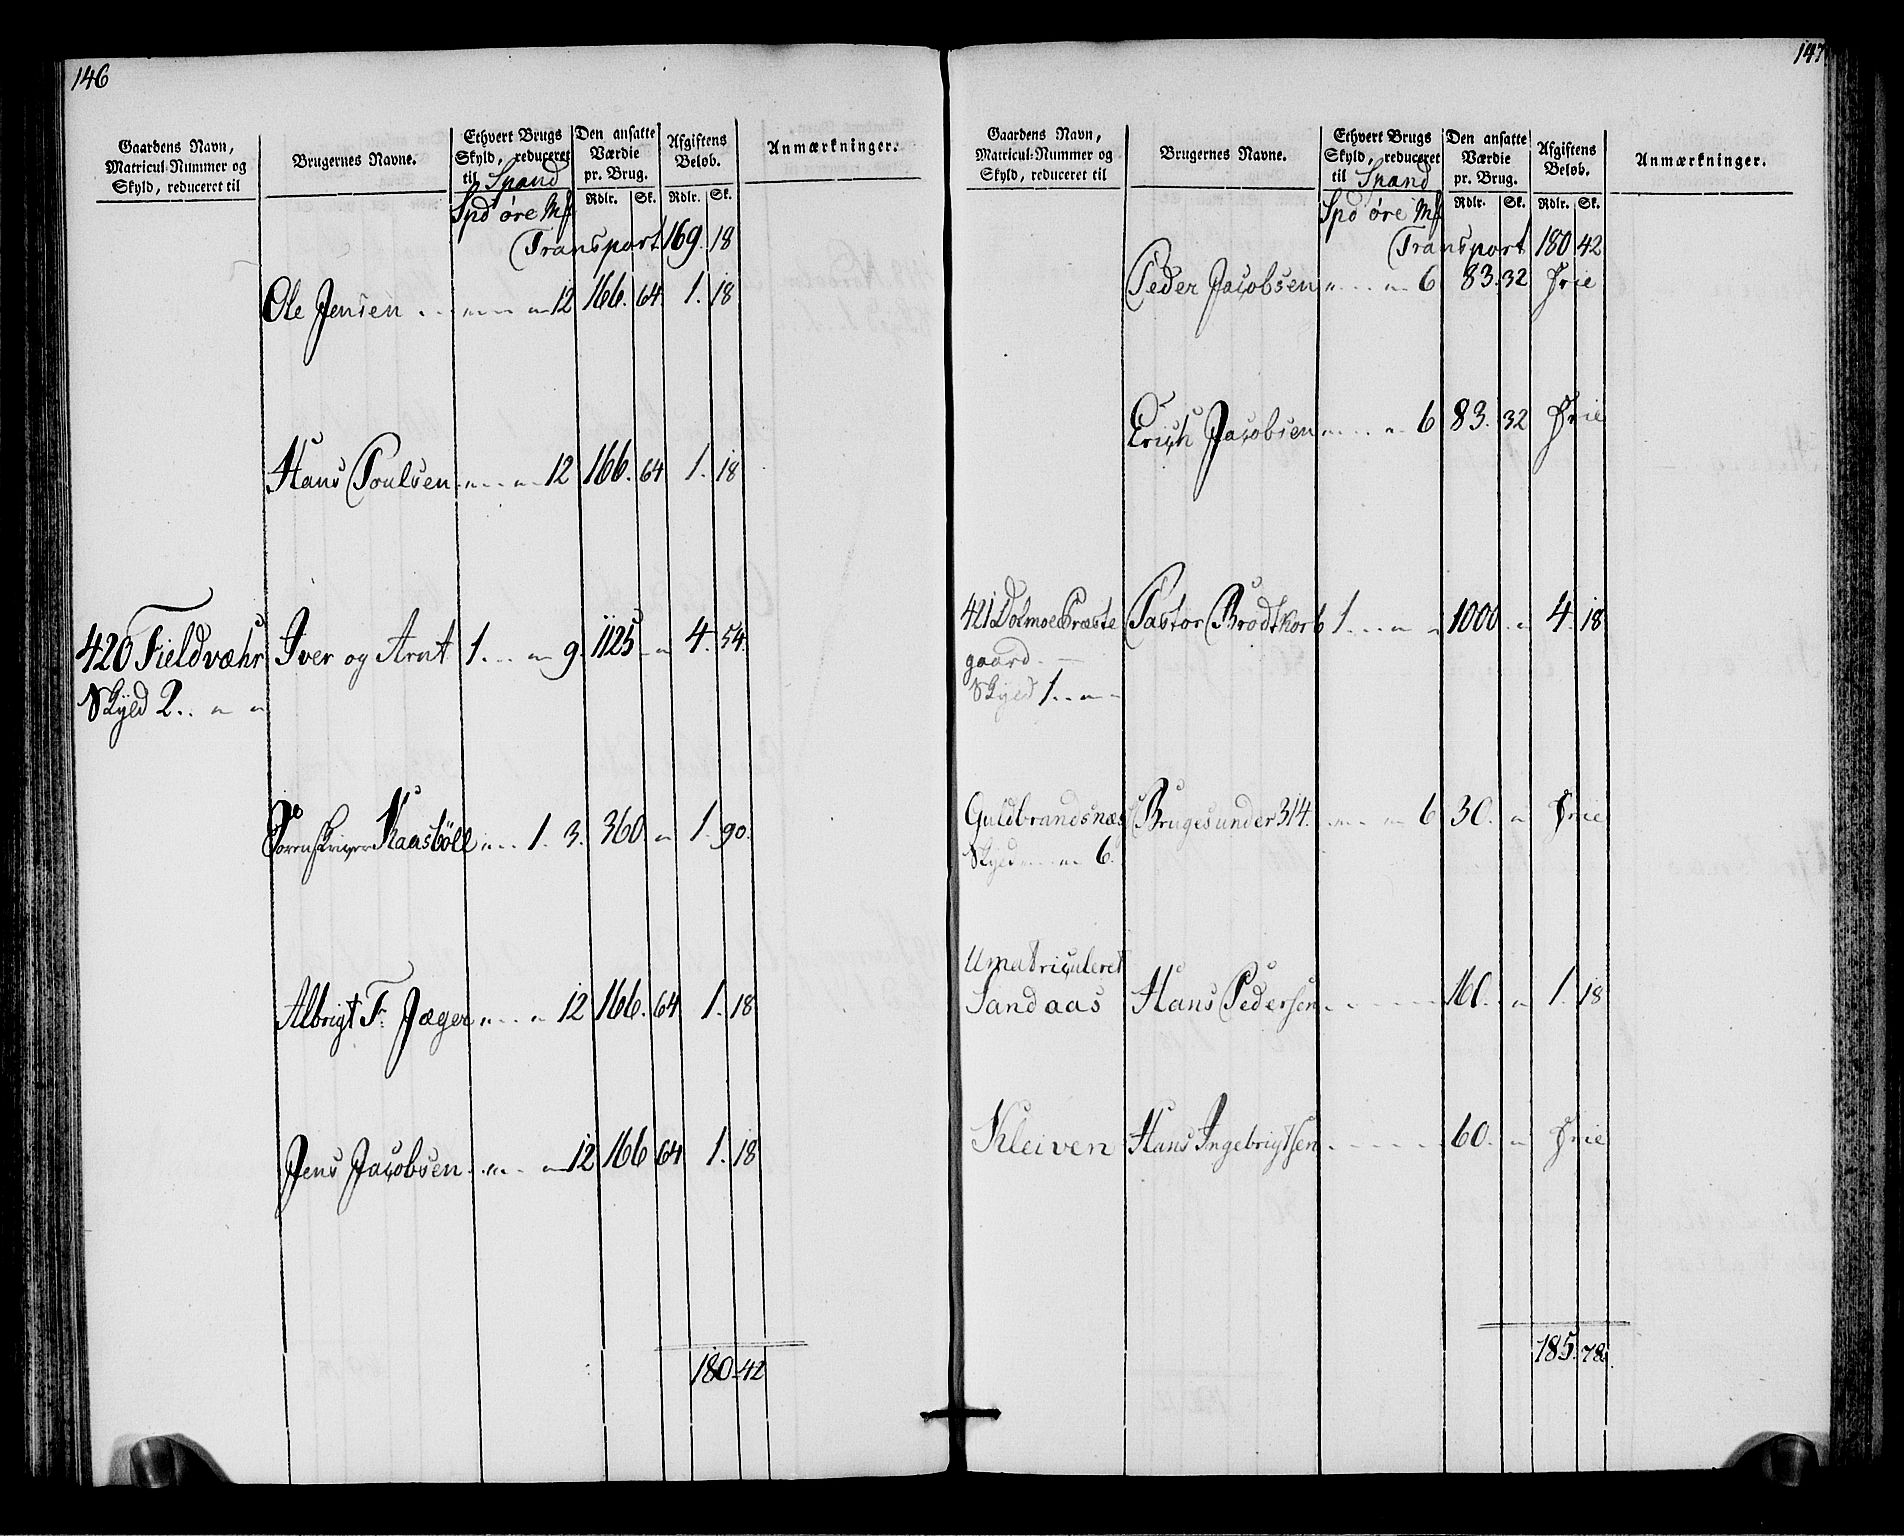 146
Gaardens Navn, Matricul-Nummer og Skyld, reduceret til
Brugernes Navne.
Ethvert Brugs Skyld, reduceret til Spand
Den ansatte Værdie pr. Brug.
Afgiftens Beløb.
Anmærkninger.
Spd øre Mf Rdlr. Sk. Rdlr. Sk.
Transport 169. 18
Ole Jensen . . " " " 12 166. 64 1. 18
Hans Poulsen . " . . " 12 166. 64 1. 18
420 Fieldvæhr Iver og Arnt 1. . . " 9. 1125 " 4. 54.
Skyld 2. . " "
Sorenskriver Kaasböll " . . 1. 3. 360 " 1. 90.
Albrigt F. Jæger " . . " 12 166. 64 1. 18
Jens Jacobsen . " . . " 12 166 64 1. 18
180. 42
147
Gaardens Navn, Matricul-Nummer og Skyld, reduceret til
Brugernes Navne.
Ethvert Brugs Skyld, reduceret til Spand
Den ansatte Værdie pr. Brug.
Afgiftens Beløb.
Anmærkninger.
Spd øre Mf Rdlr. Sk. Rdlr. Sk.
Transport 180 42
Peder Jacobsen " . . . " 6 83. 32 Frie
Erich Jacobsen " . . . " 6 83. 32 Frie
421 Dolmoe Præste Pastor Brodtkorb 1 . . . " " 1000 " 4. 18
gaard. —
Skyld 1. . " "
Guldbrandsnæs Bruges under 314. . . " . " 6 30. " Frie
Skyld " . . " 6.
Umatriculeret
Sandaas Hans Pedersen . . . . 160. " 1. 18
Kleiven Hans Ingebrigtsen . . . . 60. " Frie
185. 78.